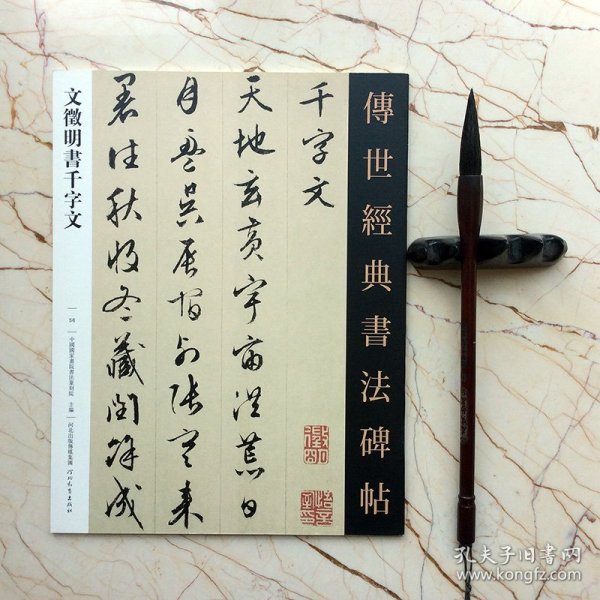 傳世經典書法碑帖
千字文
天地玄黄宇宙洪荒日
月盈昃辰宿列張寒来
暑往秋收冬藏閏餘成
文徵明書千字文
56
中國國家書院書法篆刻院 主編
河北出版傳媒集團
河北教育出版社
孔夫子旧书网
www.kongfz.com